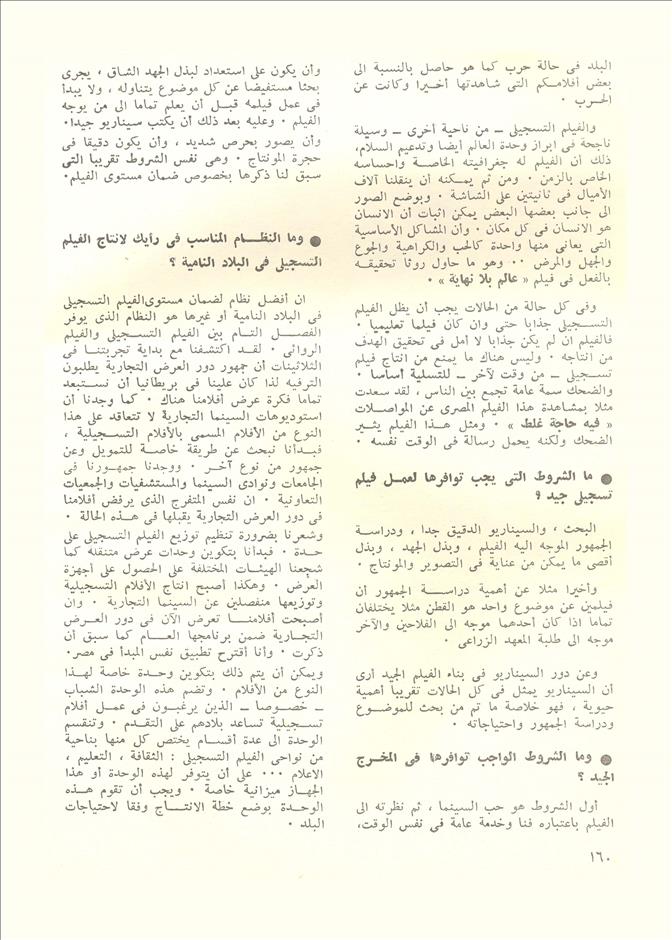 البلد فى حالة حرب كما هو حاصل بالنسبة الى
بعض أفلامكم التى شاهدتها أخيرا وكانت عن
الحرب .
والفيلم التسجيلى ــ من ناحية أخرى ــ وسيلة
ناجحة فى ابراز وحدة العالم أيضا وتدعيم السلام،
ذلك أن الفيلم له جغرافيته الخاصة واحساسه
الخاص بالزمن . ومن ثم يمكنه أن ينقلنا آلاف
الأميال فى ثانيتين على الشاشة . وبوضع الصور
الى جانب بعضها البعض يمكن اثبات أن الانسان
هو الانسان فى كل مكان . وأن المشاكل الأساسية
التى يعانى منها واحدة كالحب والكراهية والجوع
والجهل والمرض .. وهو ما حاول روثا تحقيقه
بالفعل فى فيلم « عالم بلا نهاية » .
وفى كل حالة من الحالات يجب أن يظل الفيلم
التسجيلى جذابا حتى وان كان فيلما تعليميا .
فالفيلم ان لم يكن جذابا لا أمل فى تحقيق الهدف
من انتاجه . وليس هناك ما يمنع من انتاج فيلم
تسجيلى ــ من وقت لآخر ــ للتسلية أساسا .
والضحك سمة عامة تجمع بين الناس ، لقد سعدت
مثلا بمشاهدة هذا الفيلم المصرى عن المواصلات
« فيه حاجة غلط » . ومثل هذا الفيلم يثير
الضحك ولكنه يحمل رسالة فى الوقت نفسه .
● ما الشروط التى يجب توافرها لعمل فيلم
تسجيلى جيد ؟
البحث ، والسيناريو الدقيق جدا ، ودراسة
الجمهور الموجه اليه الفيلم ، وبذل الجهد ، وبذل
أقصى ما يمكن من عناية فى التصوير والمونتاج .
وأخيرا مثلا عن أهمية دراسة الجمهور أن
فيلمين عن موضوع واحد هو القطن مثلا يختلفان
تماما اذا كان أحدهما موجه الى الفلاحين والآخر
موجه الى طلبة المعهد الزراعى .
وعن دور السيناريو فى بناء الفيلم الجيد أرى
أن السيناريو يمثل فى كل الحالات تقريبا أهمية
حيوية ، فهو خلاصة ما تم من بحث للموضوع
ودراسة الجمهور واحتياجاته .
● وما الشروط الواجب توافرها فى المخرج
الجيد ؟
أول الشروط هو حب السينما ، ثم نظرته الى
الفيلم باعتباره فنا وخدمة عامة فى نفس الوقت،
وأن يكون على استعداد لبذل الجهد الشاق ، يجرى
بحثا مستفيضا عن كل موضوع يتناوله ، ولا يبدأ
فى عمل فيلمه قبل أن يعلم تماما الى من يوجه
الفيلم . وعليه بعد ذلك أن يكتب سيناريو جيدا.
وأن يصور بحرص شديد ، وأن يكون دقيقا فى
حجرة المونتاج . وهى نفس الشروط تقريبا التى
سبق لنا ذكرها بخصوص ضمان مستوى الفيلم.
● وما النظام المناسب فى رأيك لانتاج الفيلم
التسجيلى فى البلاد النامية ؟
ان أفضل نظام لضمان مستوى الفيلم التسجيلى
فى البلاد النامية أو غيرها هو النظام الذى يوفر
الفصل التام بين الفيلم التسجيلى والفيلم
الروائى . لقد اكتشفنا مع بداية تجربتنا فى
الثلاثينات أن جمهور دور العرض التجارية يطلبون
الترفيه لذا كان علينا فى بريطانيا أن نستبعد
تماما فكرة عرض أفلامنا هناك . كما وجدنا أن
استوديوهات السينما التجارية لا تتعاقد على هذا
النوع من الأفلام المسمى بالأفلام التسجيلية ،
فبدأنا نبحث عن طريقة خاصة للتمويل وعن
جمهور من نوع آخر . ووجدنا جمهورنا فى
الجامعات ونوادى السينما والمستشفيات والجمعيات
التعاونية . ان نفس المتفرج الذى يرفض أفلامنا
فى دور العرض التجارية يقبلها فى هذه الحالة .
وشعرنا بضرورة تنظيم توزيع الفيلم التسجيلى على
حدة . فبدأنا بتكوين وحدات عرض متنقلة كما
شجعنا الهيئات المختلفة على الحصول على أجهزة
العرض . وهكذا أصبح انتاج الأفلام التسجيلية
وتوزيعها منفصلين عن السينما التجارية . وان
أصبحت أفلامنا تعرض الآن فى دور العرض
التجارية ضمن برنامجها العام كما سبق أن
ذكرت . وأنا أقترح تطبيق نفس المبدأ فى مصر.
ويمكن أن يتم ذلك بتكوين وحدة خاصة لهذا
النوع من الأفلام . وتضم هذه الوحدة الشباب
ــ خصوصا ــ الذين يرغبون فى عمل أفلام
تسجيلية تساعد بلادهم على التقدم . وتنقسم
الوحدة الى عدة أقسام يختص كل منها بناحية
من نواحى الفيلم التسجيلى : الثقافة ، التعليم ،
الاعلام ... على أن يتوفر لهذه الوحدة أو هذا
الجهاز ميزانية خاصة . ويجب أن تقوم هذه
الوحدة بوضع خطة الانتاج وفقا لاحتياجات
البلد .
١٦٠